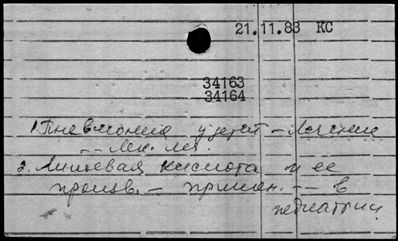 21.11.83 КС
34163
34164
1. Пневмония у детей - Лечение
-- Лек. леч.
2. Липоевая кислота и ее
произв. - примен. -- в
педиатрии